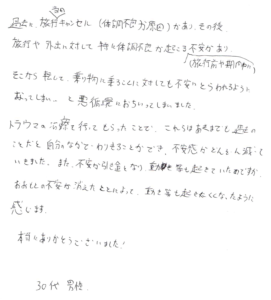 過去の旅行キャンセル（体調不良が原因）があり、その後、
旅行や外出に対して特に体調不良が起こる不安があり
（旅行前や期間中に）
そこから転じて、乗り物に乗ることに対しても不安にとらわれるように
なってしまい、悪循環におちいってしまいました。
トラウマの治療を行ってもらったことで、これらはあくまでも過去の
ことだと自分なりに
ことができ、不安感がどんどん減って
いきました。また、不安が引き金となり動悸等も起きていたのですが、
おおもとの不安が消えたことによって、動悸等も起きにくくなったように
感じます。
本当にありがとうございました！
30代 男性